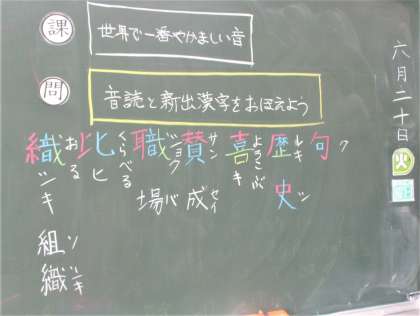 六月二十日
火
課
世界で一番やかましい音
問
音読と新出漢字をおぼえよう
句 ク
歴史 レキ シ
喜 よろこぶ キ
賛成 サン セイ
職場 ショク バ
比 くらべる ヒ
織 おる シキ
組織 ソ シキ